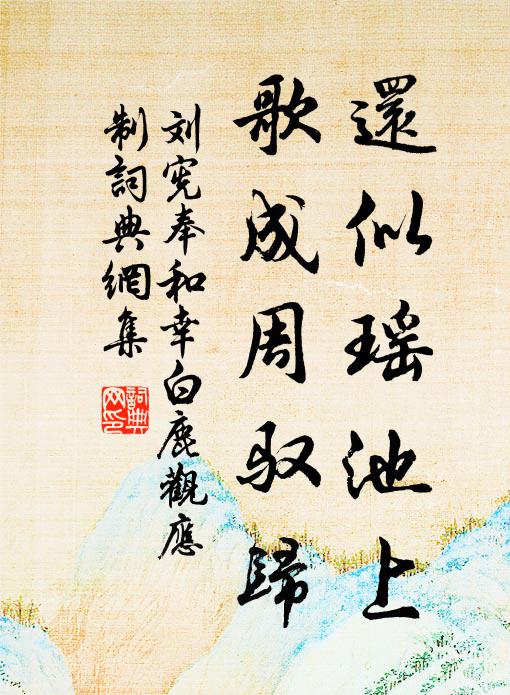 還似瑶池上
歌成周驭歸
刘宪奉和幸白鹿觀應
制詞典網集
詞典
网印